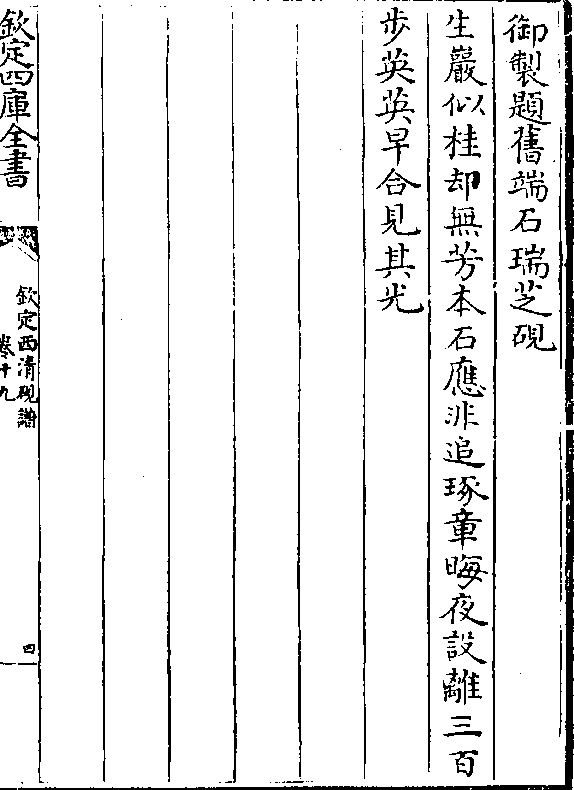 御製題舊端石瑞芝硯
生巖似桂却無芳本石應非追琢章晦夜設離三百
步英英早合見其光
欽定四庫全書
欽定西清硯譜
卷十九
四